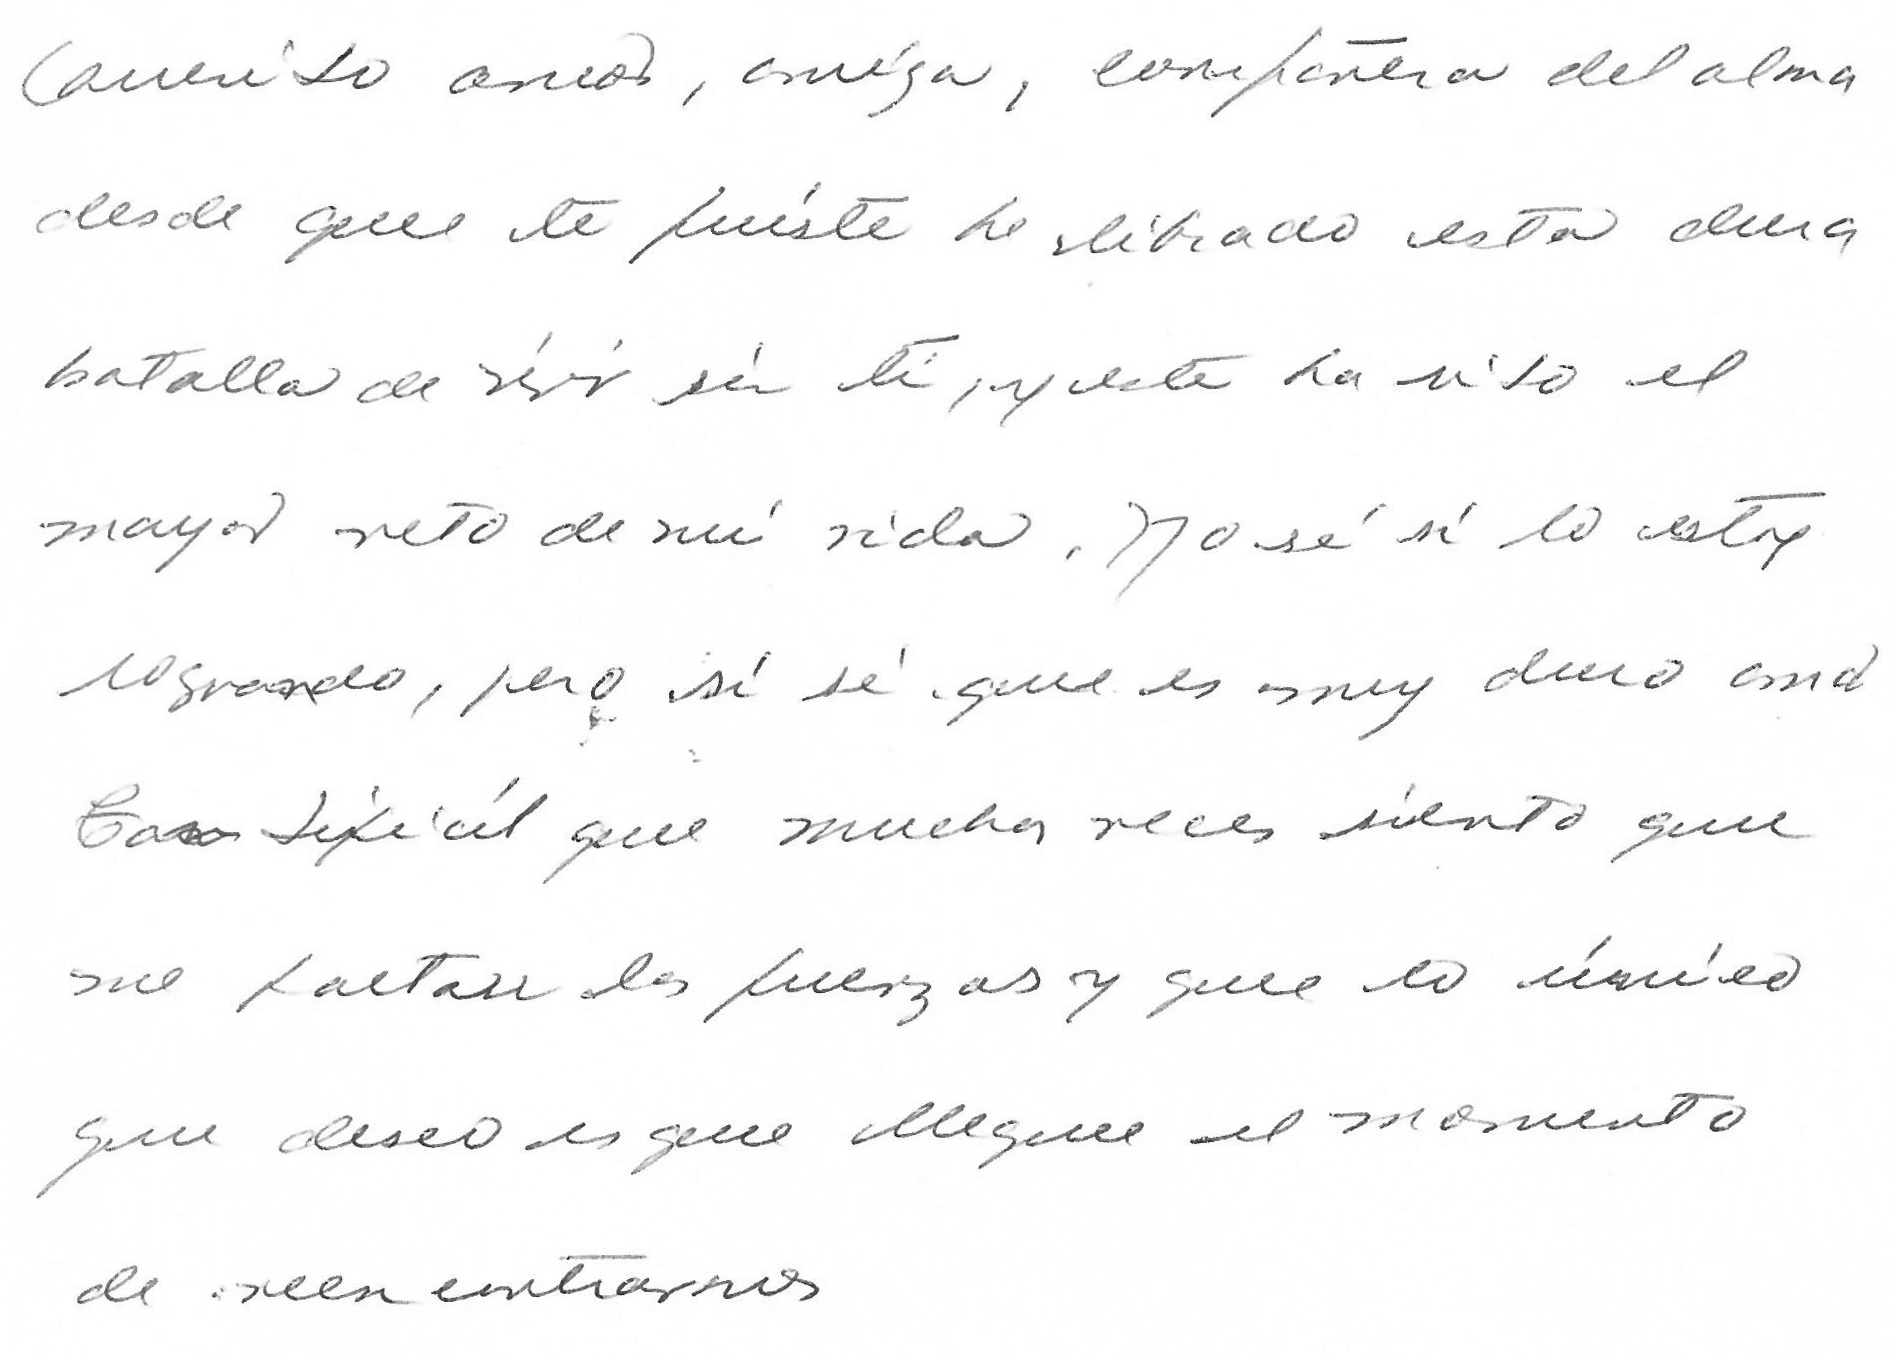 Querido amor, amiga, compañera del alma
desde que te fuiste he librado esta dura
batalla de vivir sin ti, y este ha sido el
mayor reto de mi vida. No sé si lo estoy
logrando, pero sí sé que es muy duro amor
Tan difícil que mucha veces siento que
me faltan las fuerzas y que lo único
que deseo es que llegue el momento
de reencontrarnos